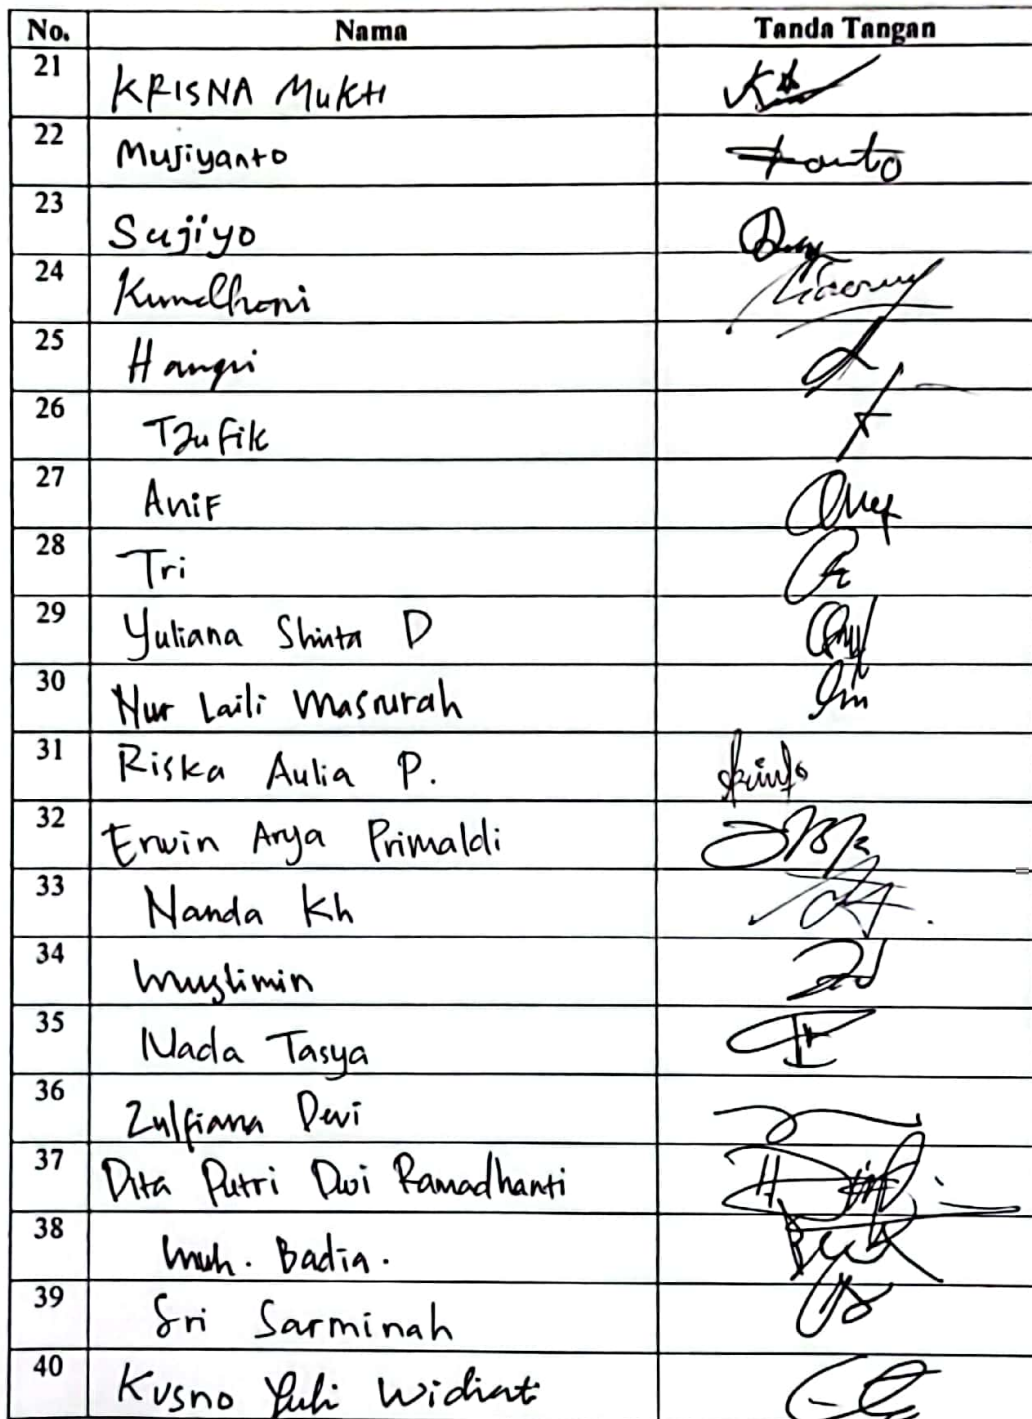 No. Nama Tanda Tangan
21 KRISNA MUKH
22 Mujiyanto
23 Sujiyo
24
25
26 Taufik
27 Anif
28 Tri
29 Yuliana Shinta D
30 Nur Laili Masrurah
31 Riska Aulia P.
32 Erwin Arya Primaldi
33 Nanda Kh
34 Muslimin
35 Nada Tasya
36 Zulfiana Dewi
37 Dita Putri Dwi Ramadhanti
38 Muh. Badia.
39 Sri Sarminah
40 Kusno Yuli